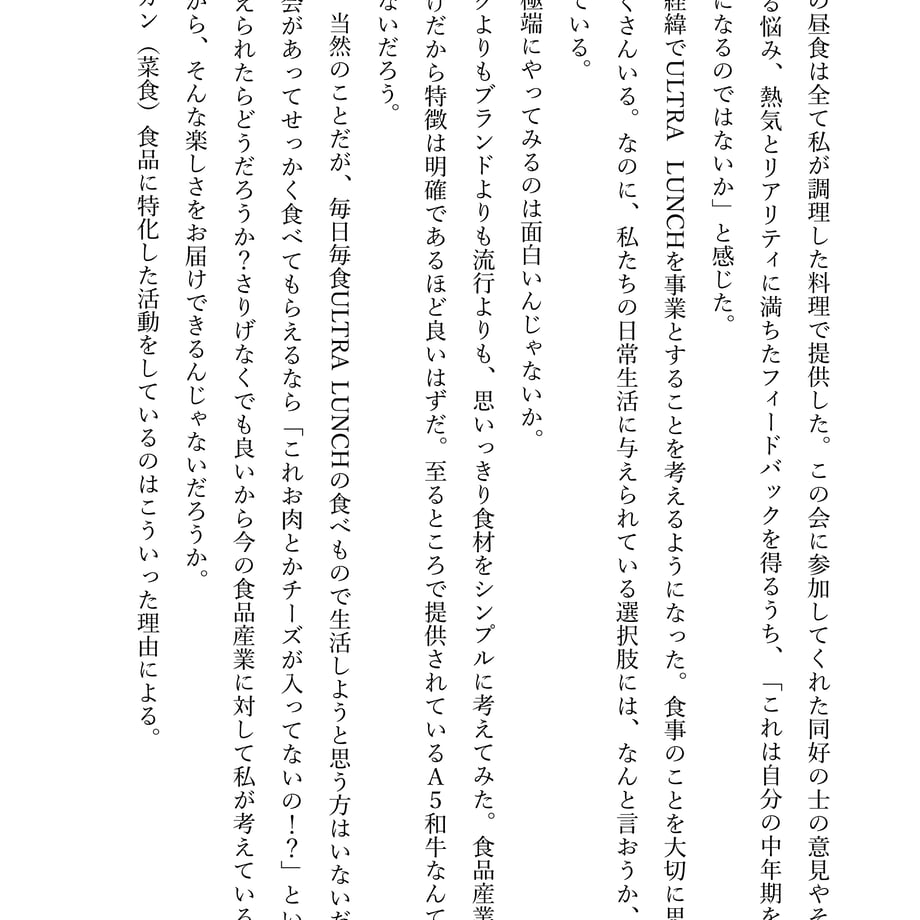 の昼食は全て私が調理した料理で提供した。この会に参加してくれた同好の士の意見やそ
る悩み、熱気とリアリティに満ちたフィードバックを得るうち、「これは自分の中年期を
になるのではないか」と感じた。
経緯でULTRA LUNCHを事業とすることを考えるようになった。食事のことを大切に思
くさんいる。なのに、私たちの日常生活に与えられている選択肢には、なんと言おうか、
ている。
極端にやってみるのは面白いんじゃないか。
クよりもブランドよりも流行よりも、思いっきり食材をシンプルに考えてみた。食品産業
けだから特徴は明確であるほど良いはずだ。至るところで提供されているA5和牛なんて
ないだろう。
当然のことだが、毎日毎食ULTRA LUNCHの食べもので生活しようと思う方はいないだ
会があってせっかく食べてもらえるなら「これお肉とかチーズが入ってないの！？」とい
えられたらどうだろうか？さりげなくでも良いから今の食品産業に対して私が考えている
がら、そんな楽しさをお届けできるんじゃないだろうか。
ガン（菜食）食品に特化した活動をしているのはこういった理由による。